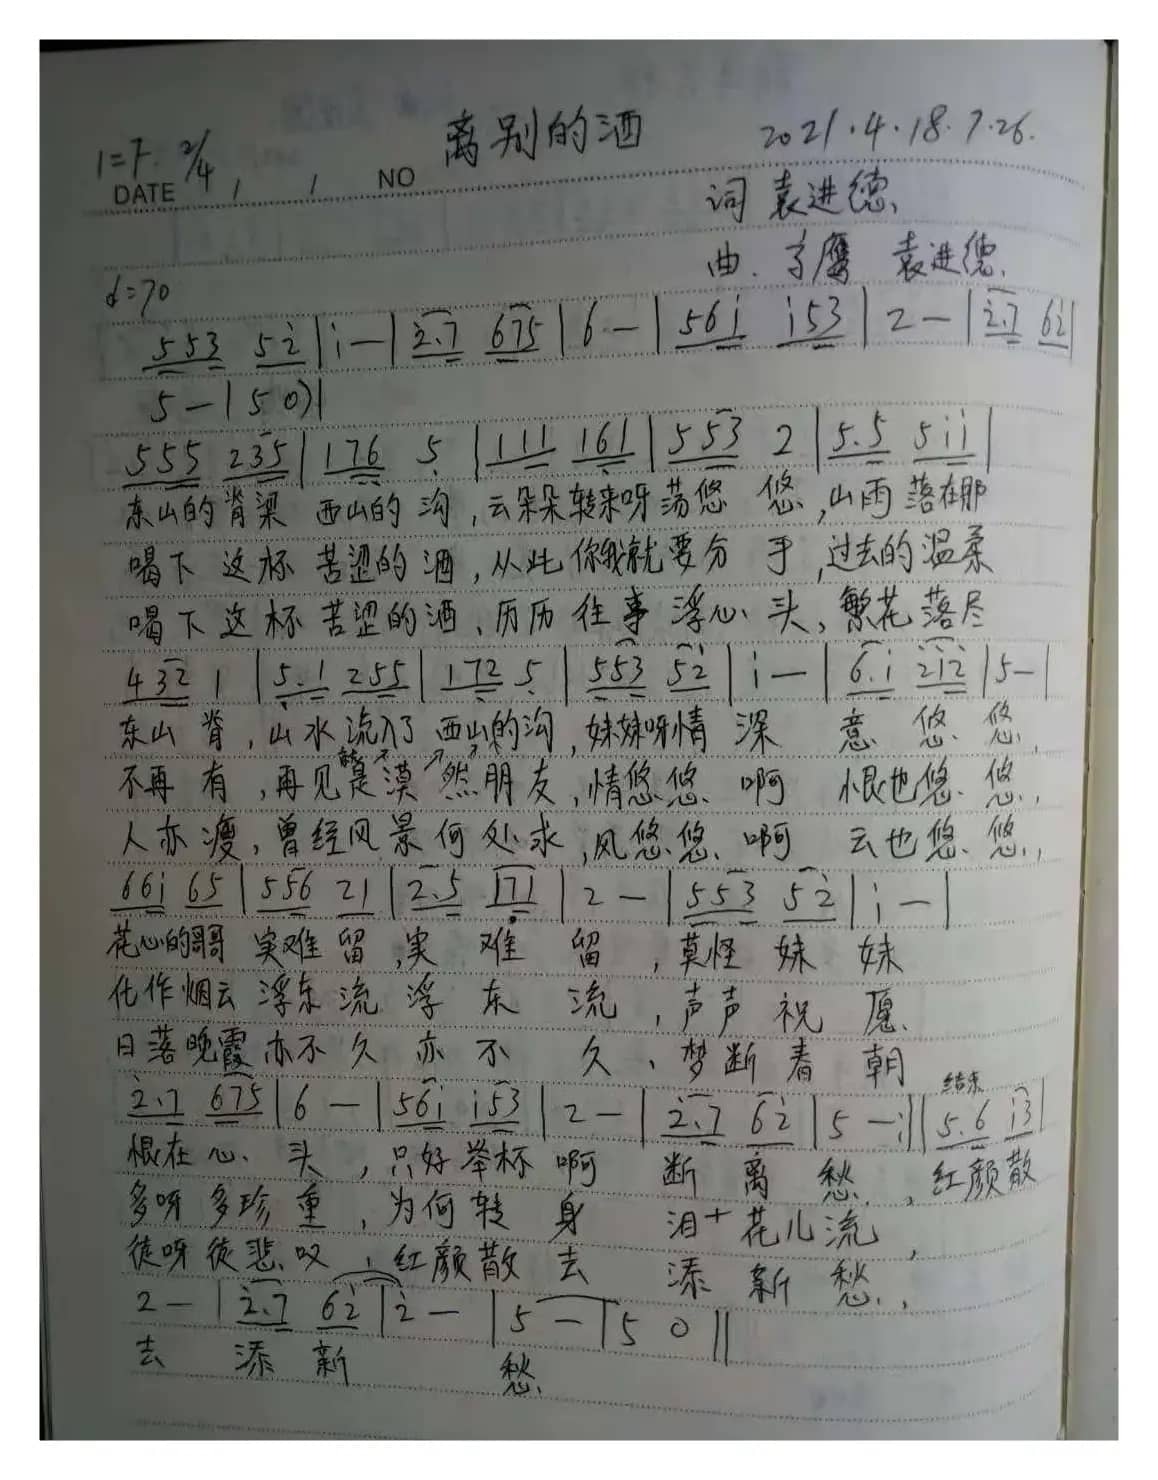 离别的酒 2021.4.18.7.26.
1=F 2/4
DATE NO
词 袁进德
曲. 子鹰 袁进德
♩=70
553 52̇ | i — | 2̇.7 675 | 6 — | 56i i53 | 2 — | 2̇.7 62̇ |
5 — | 5 0) |
555 235 | 176 5 | 111 161 | 553 2 | 5.5 5ii |
东山的脊梁 西山的沟,云朵朵转来呀荡悠 悠,山雨落在那
喝下这杯 苦涩的酒,从此你我就要分 手,过去的温柔
喝下这杯苦涩的酒、历历往事浮心头,繁花落尽
432 1 | 5.1 255 | 172 5 | 553 52̇ | i — | 6.i 2̇i2̇ | 5 — |
东山脊,山水流入了西山的沟,妹妹呀情 深 意 悠 悠,
不再有,再见就是漠然朋友,情悠悠 啊 恨也悠 悠,
人亦瘦,曾经风景何处求,风悠悠 啊 云也悠 悠,
66i 65 | 556 21 | 2.5 171 | 2 — | 553 52̇ | i — |
花心的哥哥 实难留,实 难 留,莫怪 妹 妹
化作烟云 浮东流 浮 东 流,声声 祝 愿
日落晚霞亦不久 亦 不 久、梦断春 朝
2̇.7 675 | 6 — | 56i i53 | 2 — | 2̇.7 62̇ | 5 — :|| 结束 5.6 i3 |
恨在心 头,只好举杯 啊 断 离 愁,红颜散
多呀多珍重,为何转 身 泪十花儿流,
徒呀徒悲叹,红颜散去 添 新 愁,
2 — | 2̇.7 62̇ | 2̇ — | 5 — | 5 0 ||
去 添 新 愁